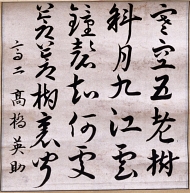 寒空五老樹
斜月九江雲
鐘聲知何處
蒼蒼樹裏聞
高二 高橋英助